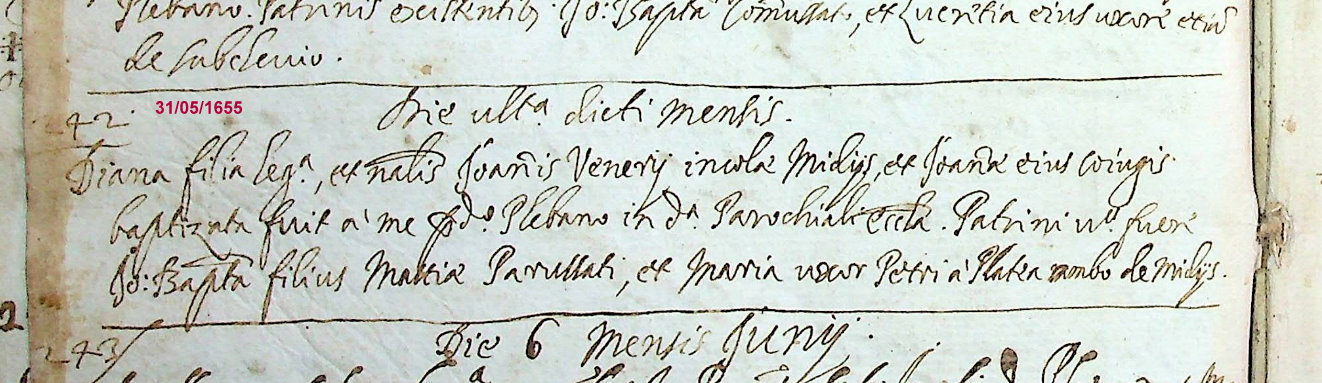 Plebano. Patrinis existentib. Jo: Bapta Comussato, et Lucretia eius uxore etiã
de subclevio.
242. 31/05/1655 Die ulta dicti mensis.
Diana filia lega, et nalis Joañis Venerij incolæ Midijs, et Joañæ eius coiugis
baptizata fuit à me pdo Plebano in da Parochiali eccla. Patrini vo fuere
Jo: Bapta filius Mattiæ Parussati, et Maria uxor Petri à Platea ambo de Midijs.
243 Die 6 Mensis Junij.